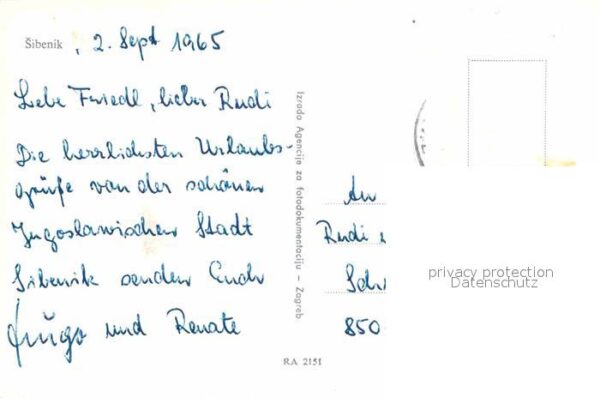 Šibenik, 2. Sept 1965
Liebe Friedl, lieber Rudi
Die herrlichsten Urlaubs-
grüße von der schönen
Jugoslawischen Stadt
Sibenik senden Euch
Hugo und Renate
Izrada Agencije za fotodokumentaciju - Zagreb
RA 2151
An
Rudi
850
privacy protection
Datenschutz